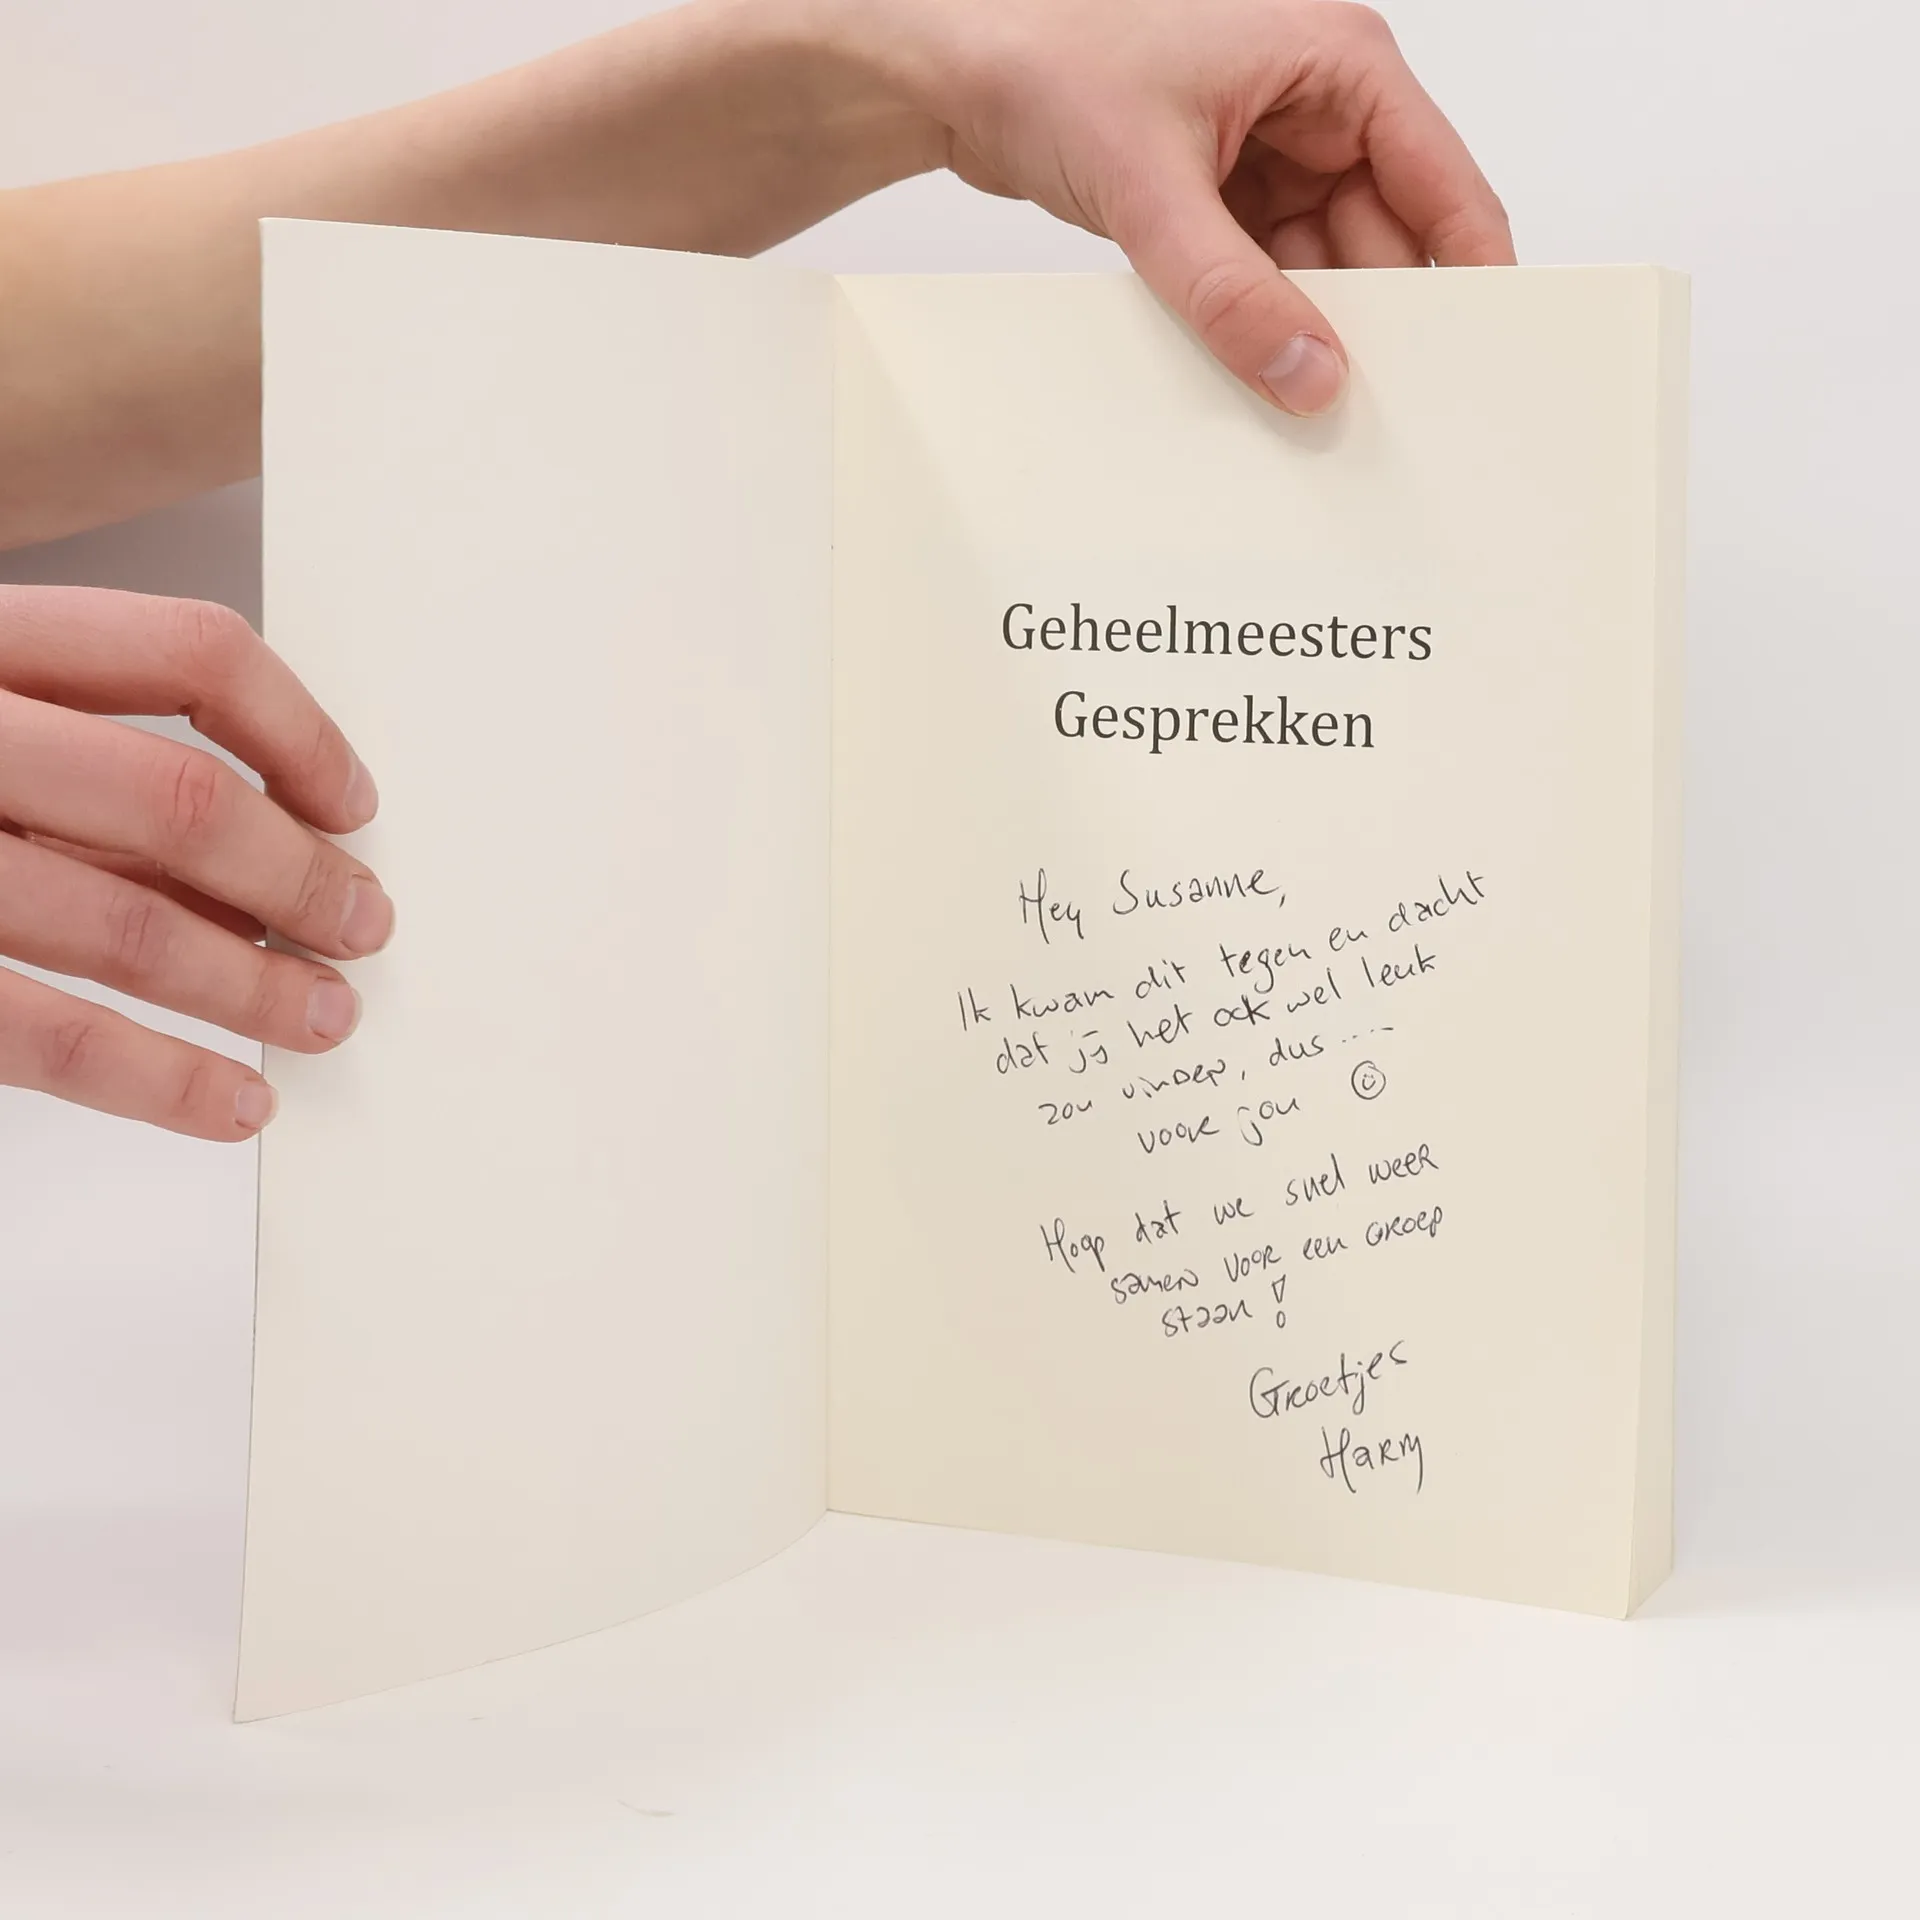 Geheelmeesters
Gesprekken
Hey Susanne,
Ik kwam dit tegen en dacht
dat jij het ook wel leuk
zou vinden, dus .....
voor jou ☺
Hoop dat we snel weer
samen voor een groep
staan!
Groetjes
Harry